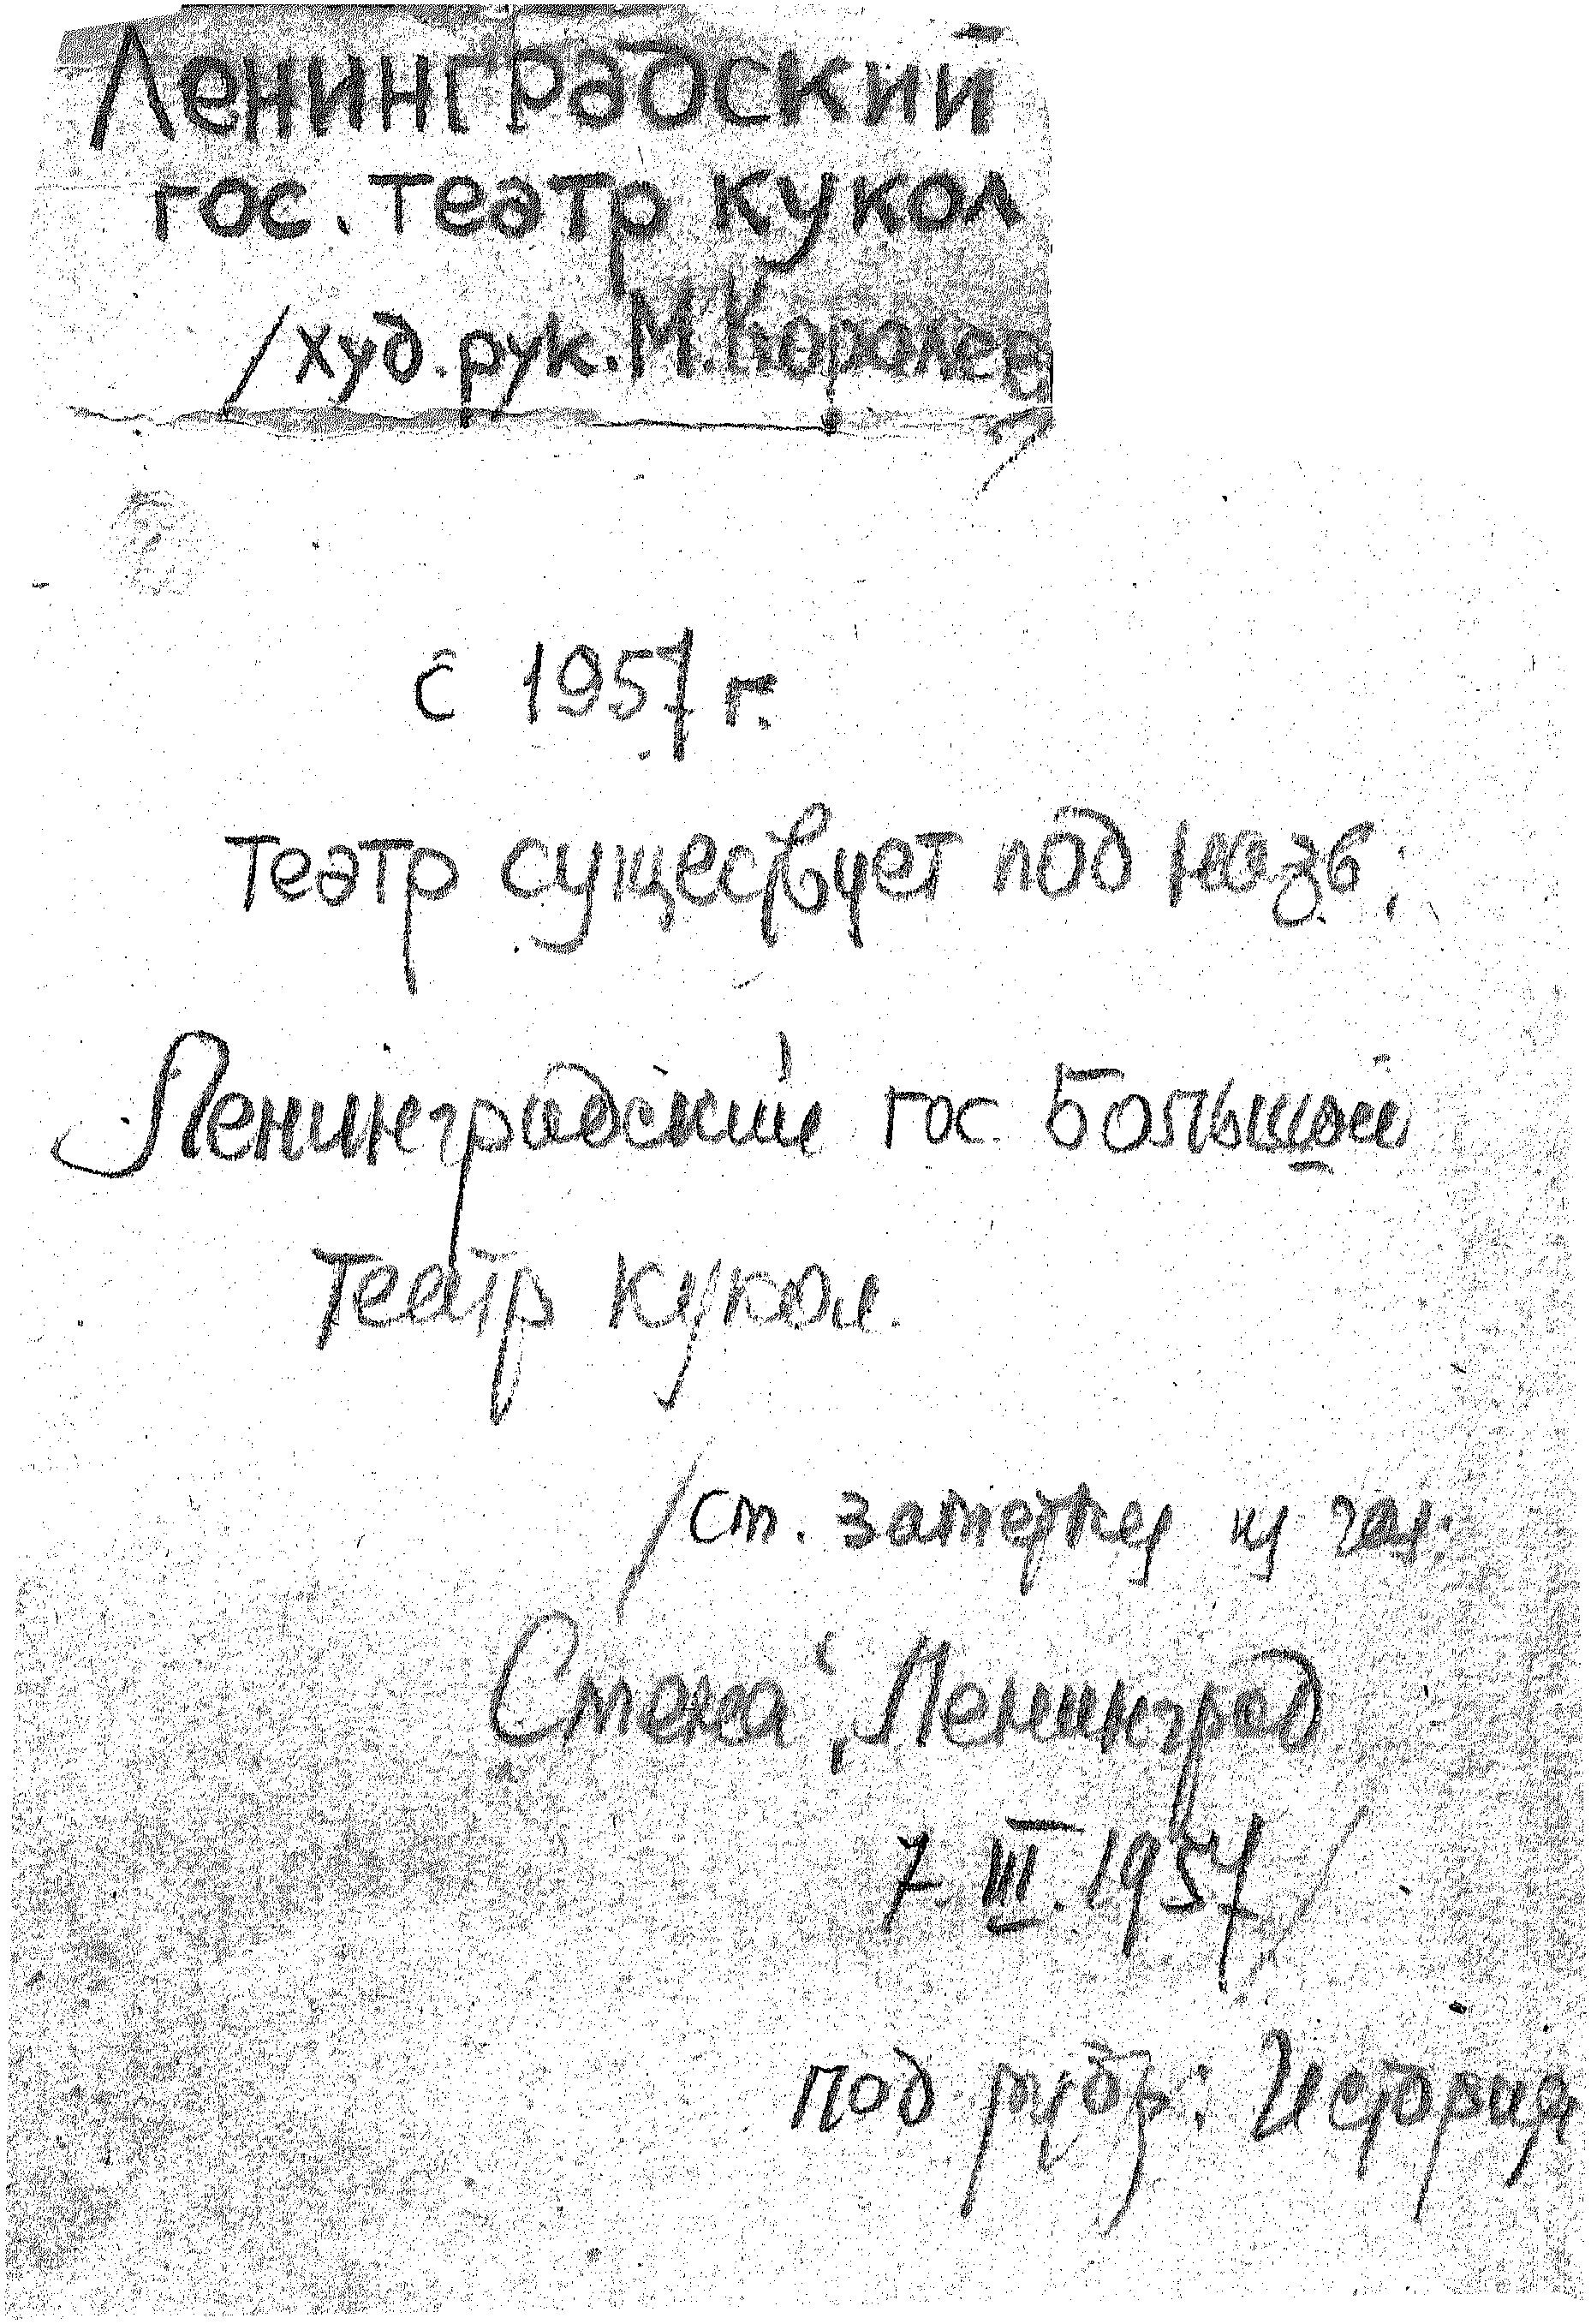 Ленинградский
гос. театр кукол
/худ. рук. М. Королев/
с 1957 г.
театр существует под назв.:
Ленинградский гос. Большой
театр кукол.
/см. заметку из газ.:
Смена", Ленинград
7.III.1957/
под рубр.: История